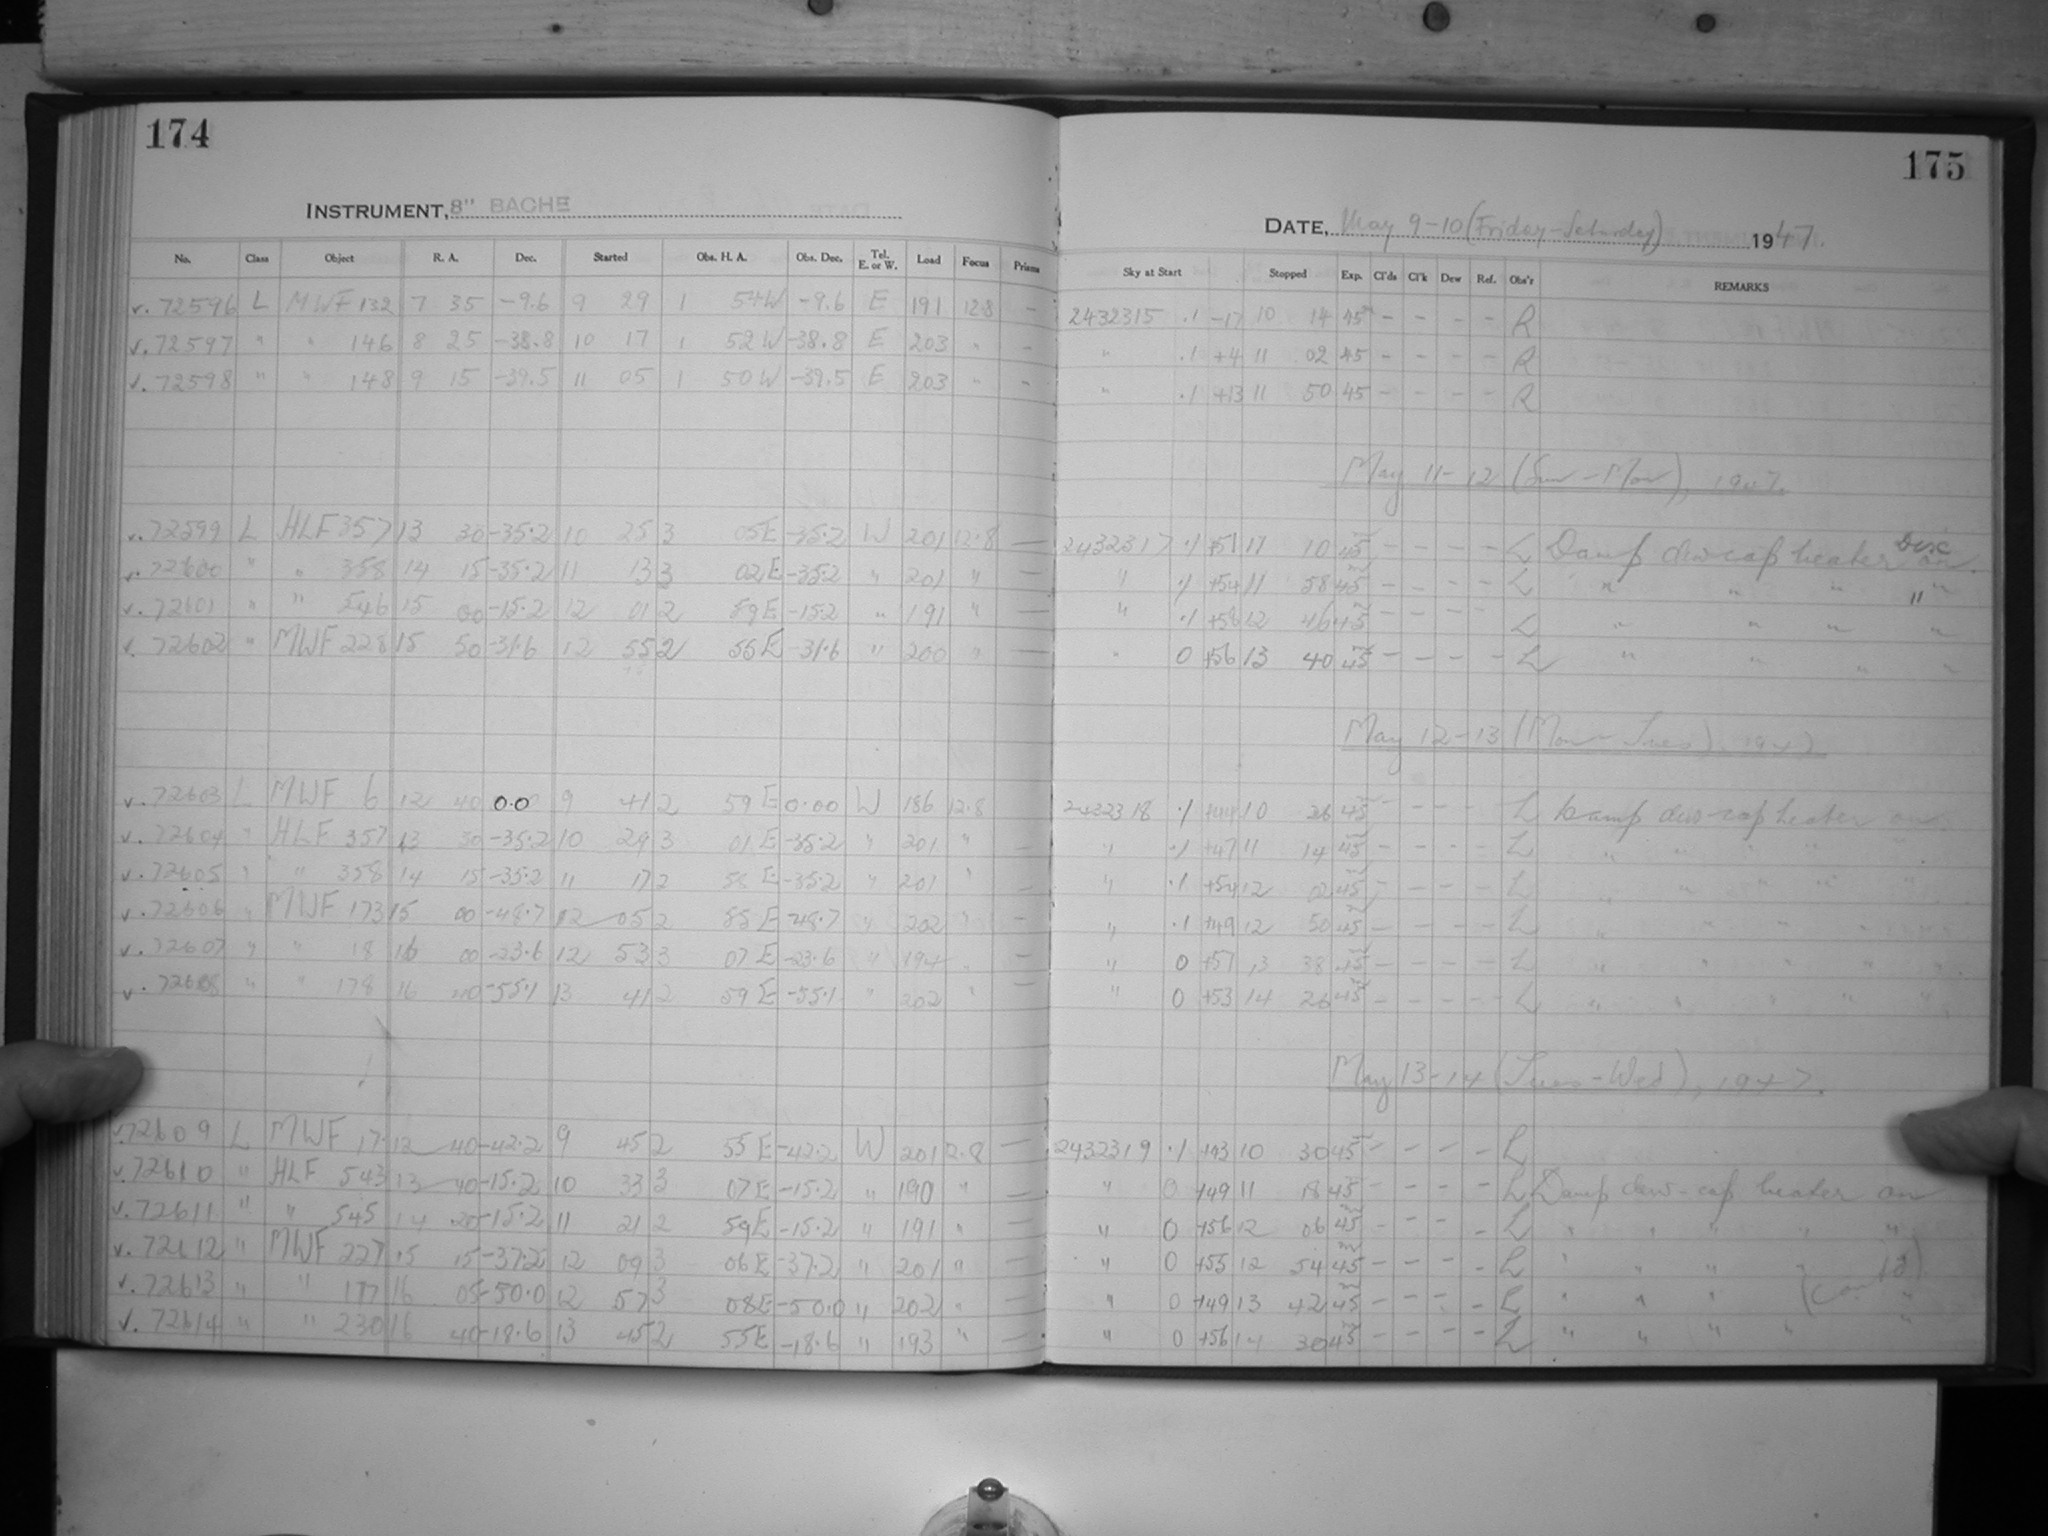 174
INSTRUMENT, 8" BACHE
No. Class Object R. A. Dec. Started Obs. H. A. Obs. Dec. Tel. E. or W. Load Focus Prisms
v. 72596 L MWF 132 7 35 -9.6 9 29 1 54W -9.6 E 191 12.8 -
v. 72597 " " 146 8 25 -38.8 10 17 1 52W -38.8 E 203 " -
v. 72598 " " 148 9 15 -39.5 11 05 1 50W -39.5 E 203 " -
v. 72599 L HLF 357 13 30 -35.2 10 25 3 05E -35.2 W 201 12.8 —
v. 72600 " " 358 14 15 -35.2 11 13 3 02E -35.2 " 201 " —
v. 72601 " " 546 15 00 -15.2 12 01 2 59E -15.2 " 191 " —
v. 72602 " MWF 228 15 50 -31.6 12 55 2 55E -31.6 " 200 " —
v. 72603 L MWF 6 12 40 0.0 9 41 2 59E 0.00 W 186 12.8
v. 72604 " HLF 357 13 30 -35.2 10 29 3 01E -35.2 " 201 " —
v. 72605 " " 358 14 15 -35.2 11 17 2 58E -35.2 " 201 " —
v. 72606 " MWF 173 15 00 -48.7 12 05 2 55E -48.7 " 202 " —
v. 72607 " " 18 16 00 -23.6 12 53 3 07E -23.6 " 194 " —
v. 72608 " " 178 16 40 -55.1 13 41 2 59E -55.1 " 202 " —
v. 72609 L MWF 17 12 40 -42.2 9 45 2 55E -42.2 W 201 12.8 —
v. 72610 " HLF 543 13 40 -15.2 10 33 3 07E -15.2 " 190 " —
v. 72611 " " 545 14 20 -15.2 11 21 2 59E -15.2 " 191 " —
v. 72612 " MWF 227 15 15 -37.2 12 09 3 06E -37.2 " 201 " —
v. 72613 " " 177 16 05 -50.0 12 57 3 08E -50.0 " 202 " —
v. 72614 " " 230 16 40 -18.6 13 45 2 55E -18.6 " 193 " —
175
DATE, May 9-10 (Friday-Saturday) 1947.
Sky at Start Stopped Exp. Cl'ds Cl'k Dew Ref. Obs'r REMARKS
2432315 .1 -17 10 14 45m - - - - R
" .1 +4 11 02 45 - - - - R
" .1 +13 11 50 45 - - - - R
May 11-12 (Sun-Mon), 1947.
2432317 .1 +51 11 10 45m - - - - L Damp dew-cap heater on. Disc
" .1 +54 11 58 45m - - - - L " " " " "
" .1 +58 12 46 45m - - - - L " " " "
" 0 +56 13 40 45m - - - - L " " " "
May 12-13 (Mon-Tues), 1947
2432318 .1 10 26 45m - - - - L Damp dew-cap heater on.
" .1 +47 11 14 45m - - - - L " " " "
" .1 +54 12 02 45m - - - - L " " " "
" .1 +49 12 50 45m - - - - L " " " "
" 0 +57 13 38 45m - - - - L " " " "
" 0 +53 14 26 45m - - - - L " " " "
May 13-14 (Tues-Wed), 1947.
2432319 .1 +43 10 30 45m - - - - L
" 0 +49 11 18 45m - - - - L Damp dew-cap heater on
" 0 +56 12 06 45m - - - - L " " " " "
" 0 +55 12 54 45m - - - - L " " " "
" 0 +49 13 42 45m - - - - L " " " (cont'd) "
" 0 +56 14 30 45m - - - - L " " " " "